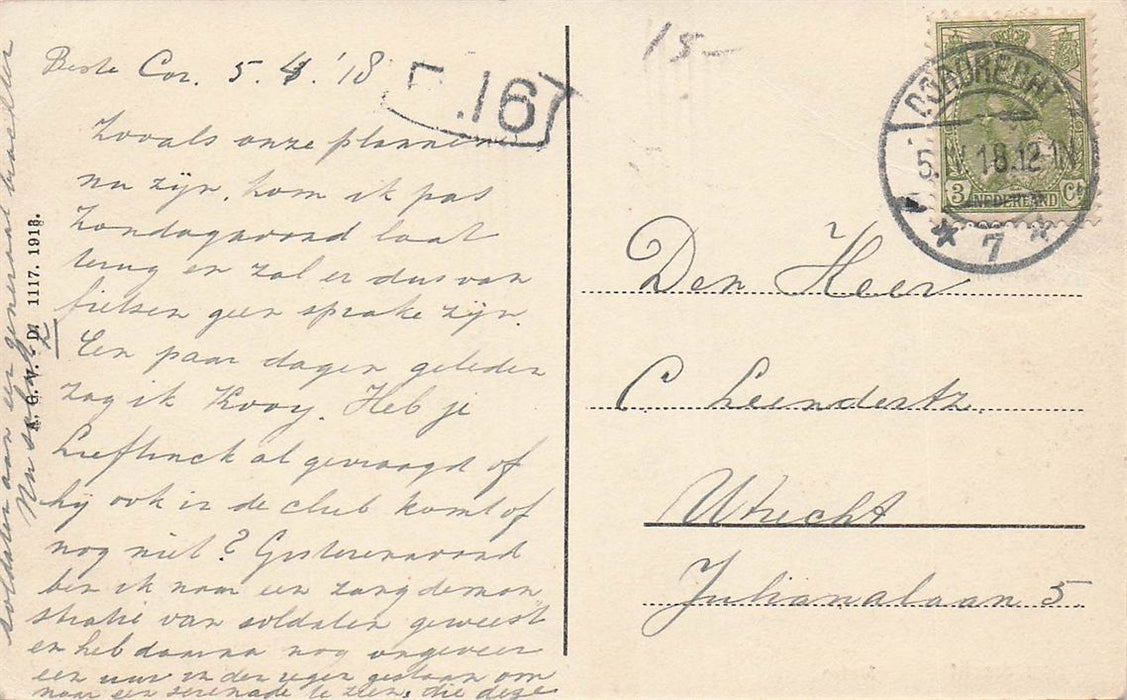 Beste Cor. 5.4.'18
Zooals onze plannen
nu zijn, kom ik pas
Zondagavond laat
terug en zal er dus van
fietsen geen sprake zijn.
Een paar dagen geleden
zag ik Kooy. Heb je
Lieftinck al gevraagd of
hij ook in de club komt of
nog niet? Gisterenavond
ben ik naar een zangdemon
stratie van soldaten geweest
en heb daarna nog ongeveer
een uur in den regen gestaan om
naar een serenade te zien, die deze
soldaten aan een generaal
Nu
A. G. V. D. 1117. 1913.
167
15-
DORDRECHT
5. 18.12-1N
7
3 Ct
NEDERLAND
Den Heer
C Leendertz.
Utrecht
Julianalaan 5.